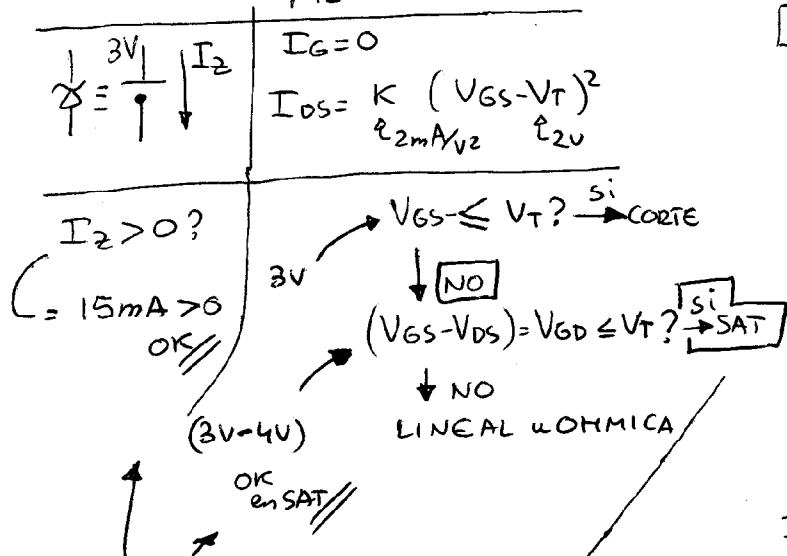 3V
I_Z
≡
I_G = 0
I_DS = K (V_GS - V_T)²
2mA/V²
2V
I_Z > 0?
= 15mA > 0
OK//
V_GS ≤ V_T? si → CORTE
3V
NO
(V_GS - V_DS) = V_GD ≤ V_T? si → SAT
NO
LINEAL u OHMICA
(3V-4V)
OK
en SAT//